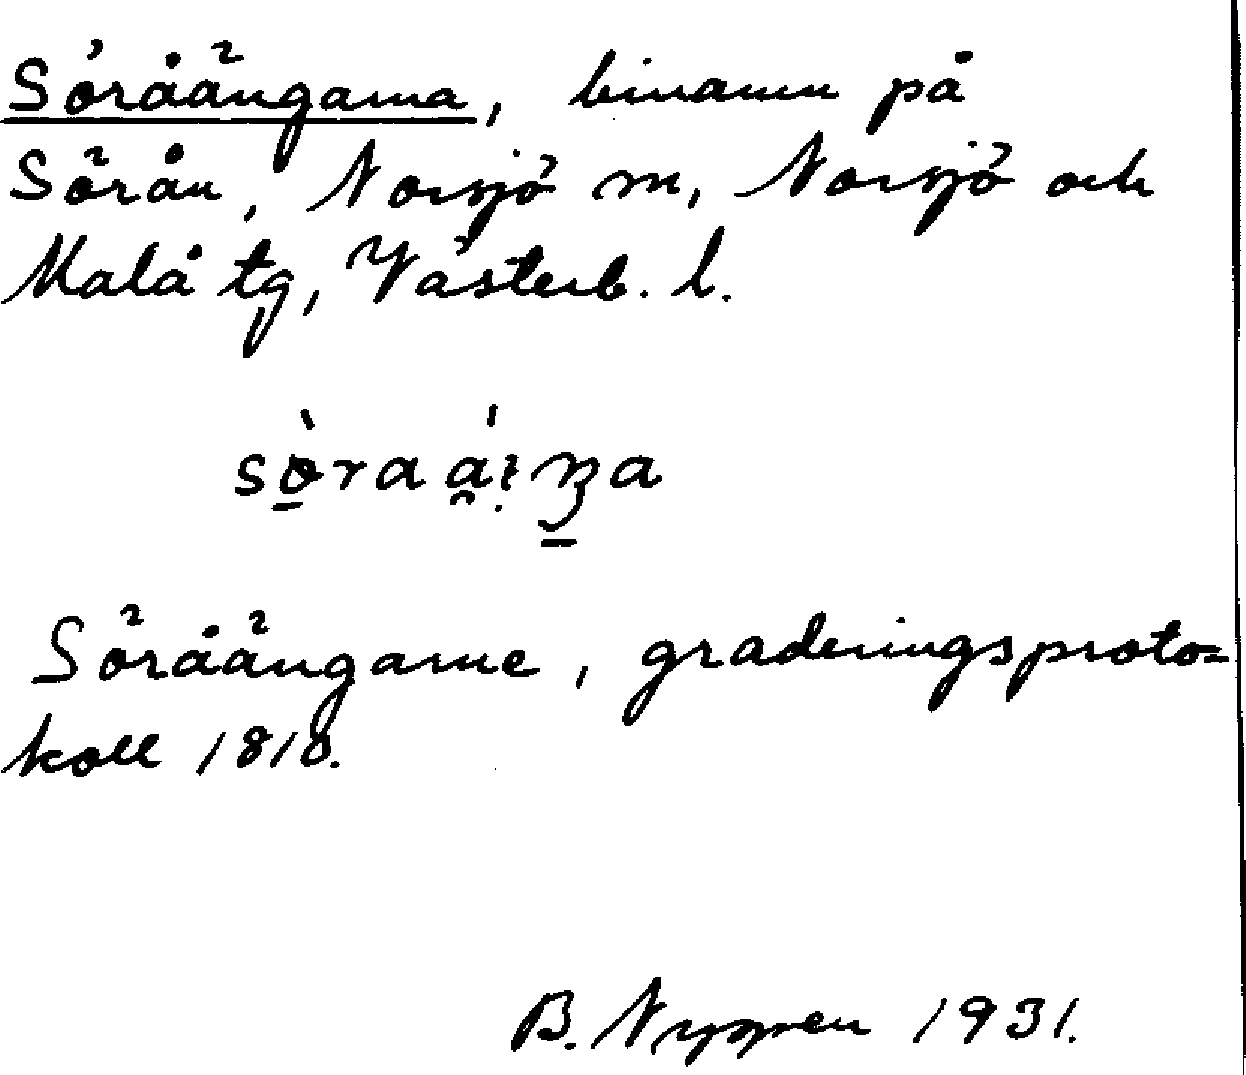 Söråängarna, binamn på
Sörån, Norsjö sn, Norsjö och
Malå tg, Västerb. l.
Söråängarne, graderingsproto=
koll 1818.
B. Nygren 1931.